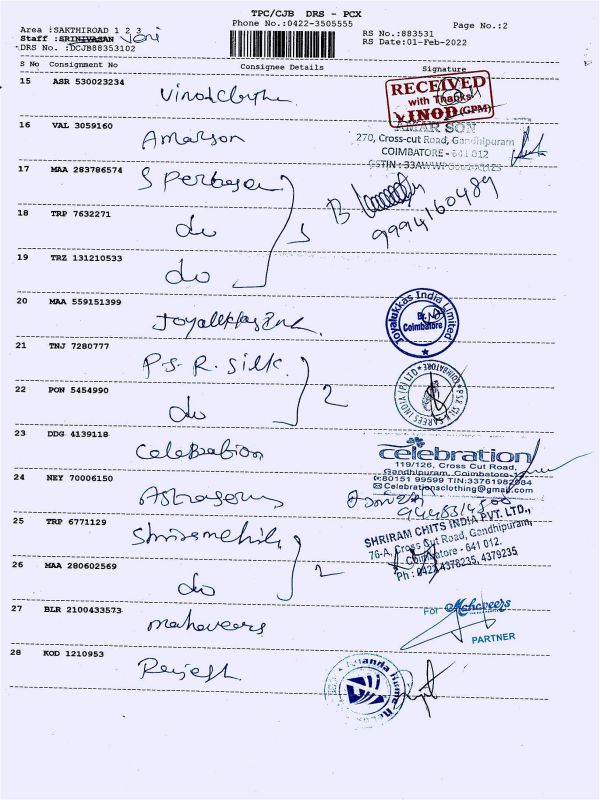 TPC/CJB DRS - PCX
Phone No.:0422-3505555 Page No.:2
Area :SAKTHIROAD 1 2 3 RS No.:883531
Staff :SRINIVASAN RS Date:01-Feb-2022
DRS No. :DCJB88353102
S No Consignment No Consignee Details Signature
15 ASR 530023234
RECEIVED
with Thanks
VINOD (GPM)
16 VAL 3059160 Amarson
AMAR SON
270, Cross-cut Road, Gandhipuram
COIMBATORE - 641 012
17 MAA 283786574
9994160489
18 TRP 7632271 do
19 TRZ 131210533 do
20 MAA 559151399
Joyalukkas India Limited
Coimbatore
21 TNJ 7280777 P.S.R. Silk.
22 PON 5454990 do 2
23 DDG 4139118 Celebration
celebration
119/126, Cross Cut Road,
Gandhipuram, Coimbatore-
80151 99599 TIN:33761982084
Celebrationsclothing@gmail.com
24 NEY 70006150
25 TRP 6771129
SHRIRAM CHITS INDIA PVT. LTD.,
76-A, Cross Cut Road, Gandhipuram,
Coimbatore - 641 012.
Ph : 0422 4378235, 4379235
26 MAA 280602569 do 2
27 BLR 2100433573 mahaveers
For Mahaveers
PARTNER
28 KOD 1210953 Rajesh